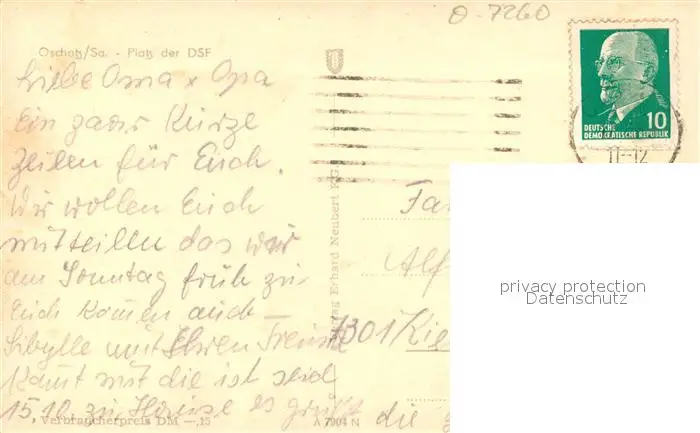 O-7260
Oschatz/Sa. - Platz der DSF
Liebe Oma x Opa
Ein paar Kurze
Zeilen für Euch.
Wir wollen Euch
mitteillen das wir
am Sonntag früh zu
Euch kommen auch
Sibylle mit Ihren Freund
kamt mit die ist seid
15,10, zu Hause es grüßt die
Verbraucherpreis DM -,15
A 7904 N
Verlag Erhard Neubert KG
10
DEUTSCHE
DEMOKRATISCHE REPUBLIK
11-12
Fa
Alf
7301 Kie
privacy protection
Datenschutz